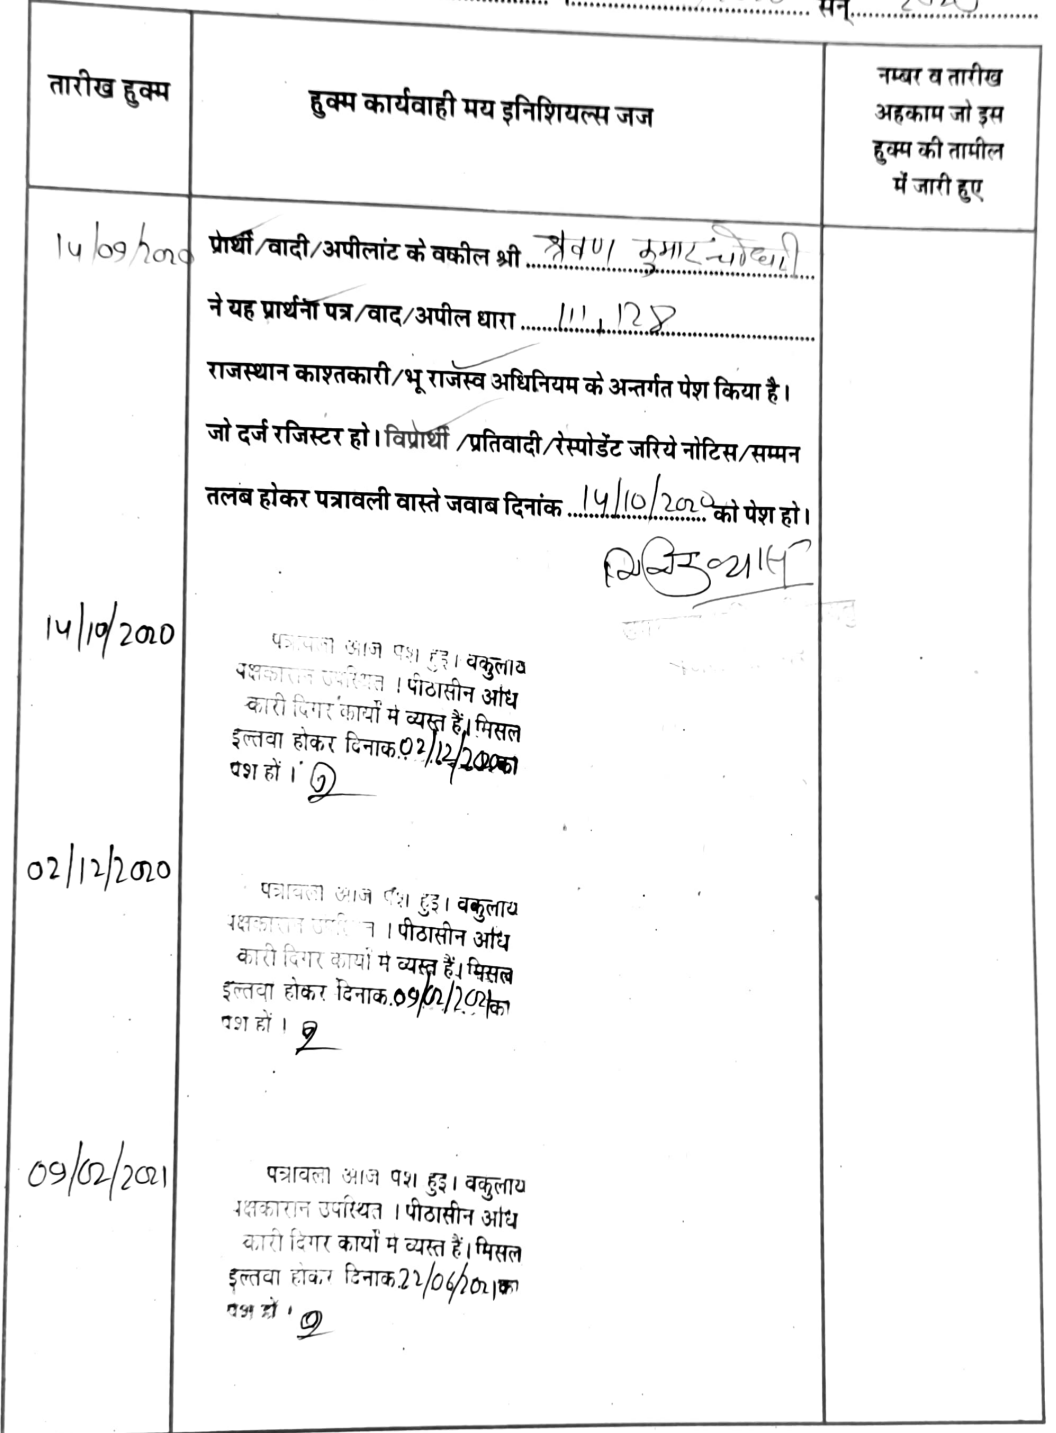 सन् 2020
तारीख हुक्म
हुक्म कार्यवाही मय इनिशियल्स जज
नम्बर व तारीख
अहकाम जो इस
हुक्म की तामील
में जारी हुए
14/09/2020
प्रार्थी/वादी/अपीलांट के वकील श्री श्रवण कुमार चौधरी
ने यह प्रार्थना पत्र/वाद/अपील धारा 111, 128
राजस्थान काश्तकारी/भू राजस्व अधिनियम के अन्तर्गत पेश किया है।
जो दर्ज रजिस्टर हो। विप्रार्थी/प्रतिवादी/रेस्पोडेंट जरिये नोटिस/सम्मन
तलब होकर पत्रावली वास्ते जवाब दिनांक 14/10/2020 को पेश हो।
14/10/2020
पत्रावली आज पेश हुई। वकुलाय
पक्षकारान उपस्थित । पीठासीन अधि
कारी दिगर कार्यो मे व्यस्त हैं। मिसल
इल्तवा होकर दिनाक 02/12/2020 को
पेश हों ।
02/12/2020
पत्रावली आज पेश हुई। वकुलाय
पक्षकारान उपस्थित । पीठासीन अधि
कारी दिगर कार्यो मे व्यस्त हैं। मिसल
इल्तवा होकर दिनाक 09/02/2021 को
पेश हों ।
09/02/2021
पत्रावली आज पेश हुई। वकुलाय
पक्षकारान उपस्थित । पीठासीन अधि
कारी दिगर कार्यो मे व्यस्त हैं। मिसल
इल्तवा होकर दिनाक 22/06/2021 को
पेश हों ।